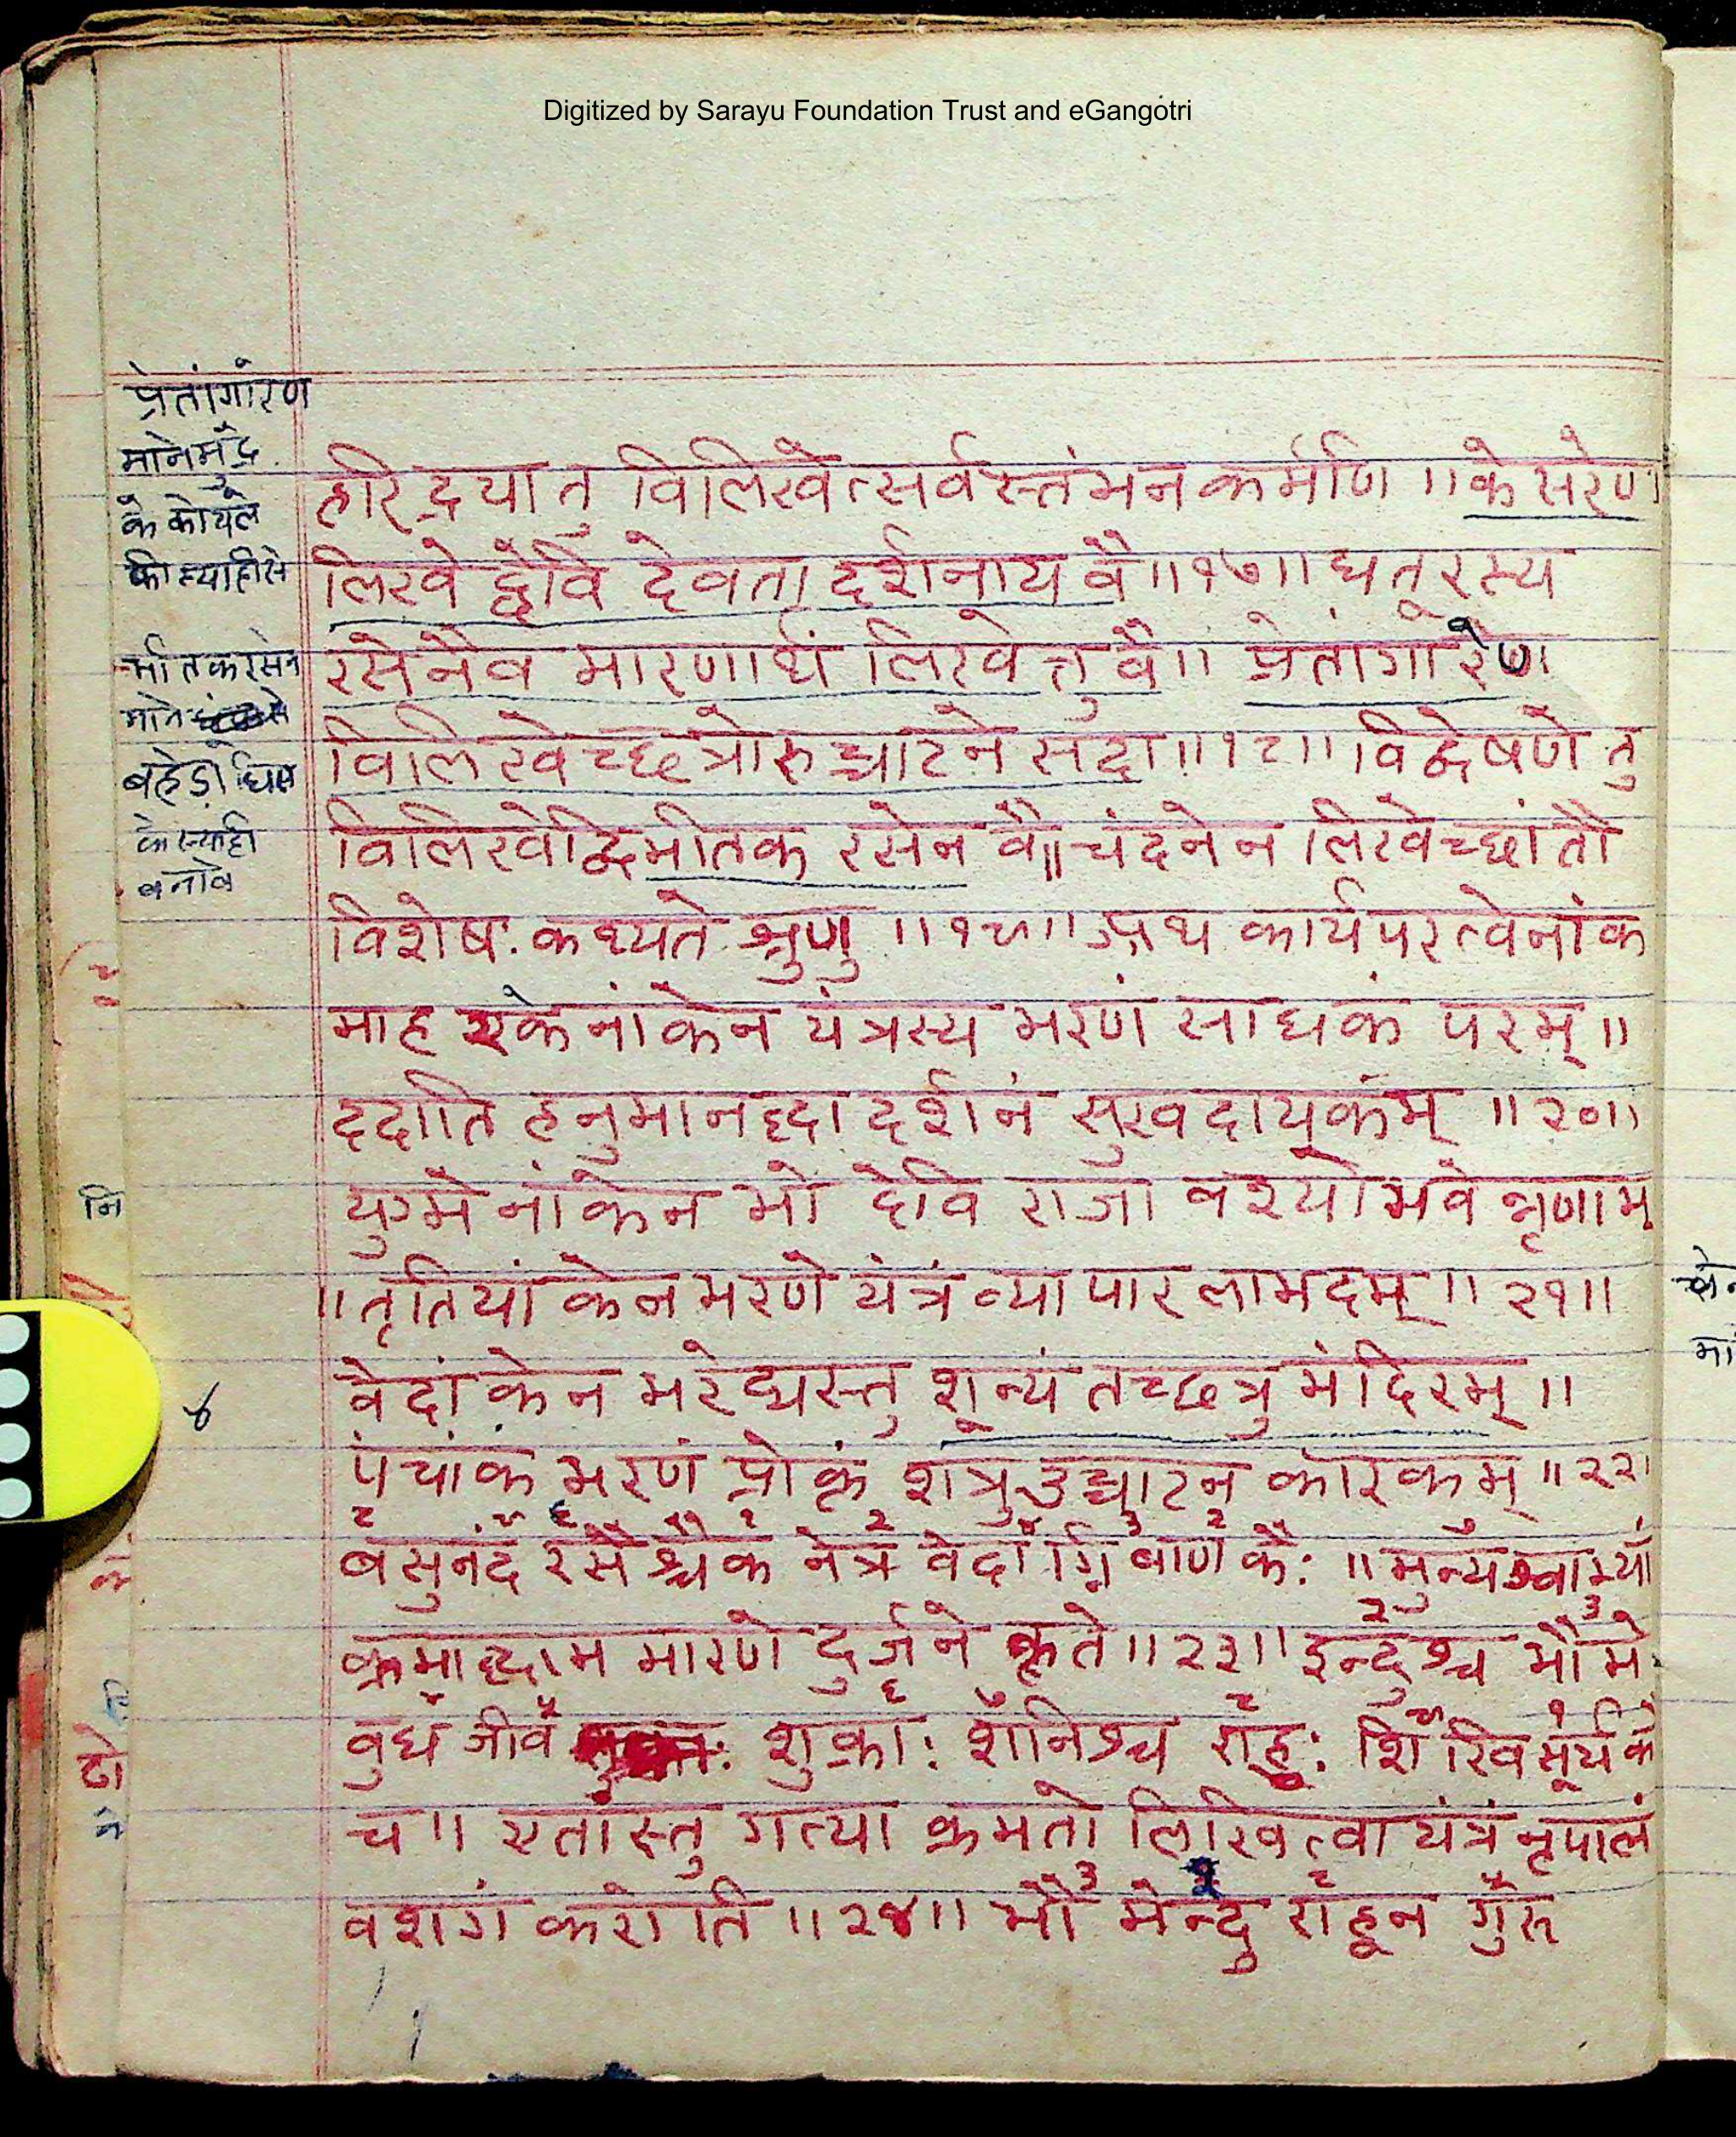 Digitized by Sarayu Foundation Trust and eGangotri
प्रेतांगारेण
मानेमुर्दे
के कोयले
की स्याहीसे
माने
बहेड़ा घिस
के स्याही
बनावे
हरिद्रया तु विलिखेत्सर्वस्तंभन कर्मणि ॥ केसरेण
लिखेद्देवि देवता दर्शनाय वै ॥१७॥ धतूरस्य
रसेनैव मारणार्थं लिखेत्तु वै ॥ प्रेतांगारेण
विलिखेच्छत्रोरुच्चाटने सदा ॥१८॥ विद्वेषणे तु
विलिखेद्विभीतक रसेन वै ॥ चंदनेन लिखेच्छांतौ
विशेषः कथ्यते श्रुणु ॥१९॥ अथ कार्यपरत्वेनांक
माह एकेनांकेन यंत्रस्य भरणं साधकं परम् ॥
ददाति हनुमानद्धा दर्शनं सुखदायकंम् ॥२०॥
युग्मेनांकेन भो देवि राजा वश्यो भवेन्नृणाम्
॥ तृतियांकेन भरणे यंत्रं व्यापार लाभदम् ॥ २१॥
वेदांकेन भरेद्यस्तु शून्यं तच्छत्रु मंदिरम् ॥
४
पंचांकं भरणं प्रोक्तं शत्रु उच्चाटन कारकम् ॥ २२॥
बसुनंद रसैश्चैकं नेत्र वेदाग्नि बाणकैः ॥ मुन्यङ्काभ्यां
क्रमाद्धाम मारणे दुर्जने कृते ॥ २३॥ इन्दुश्च भौमे
बुध जीव शुक्राः शनिश्च राहुः शिखि सूर्यकं
च ॥ एतांस्तु गत्या क्रमतो लिखित्वा यंत्रं नृपालं
वशगं करोति ॥ २४॥ भौमेन्दु राहून गुरु